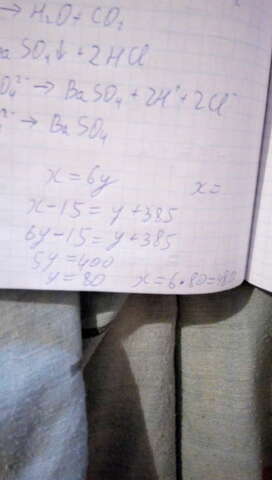 → H₂O + CO₂
BaSO₄↓ + 2HCl
O₄²⁻ → BaSO₄ + 2H⁺ + 2Cl⁻
→ BaSO₄
x = 6y x =
x - 15 = y + 385
6y - 15 = y + 385
5y = 400
y = 80 x = 6 · 80 = 480